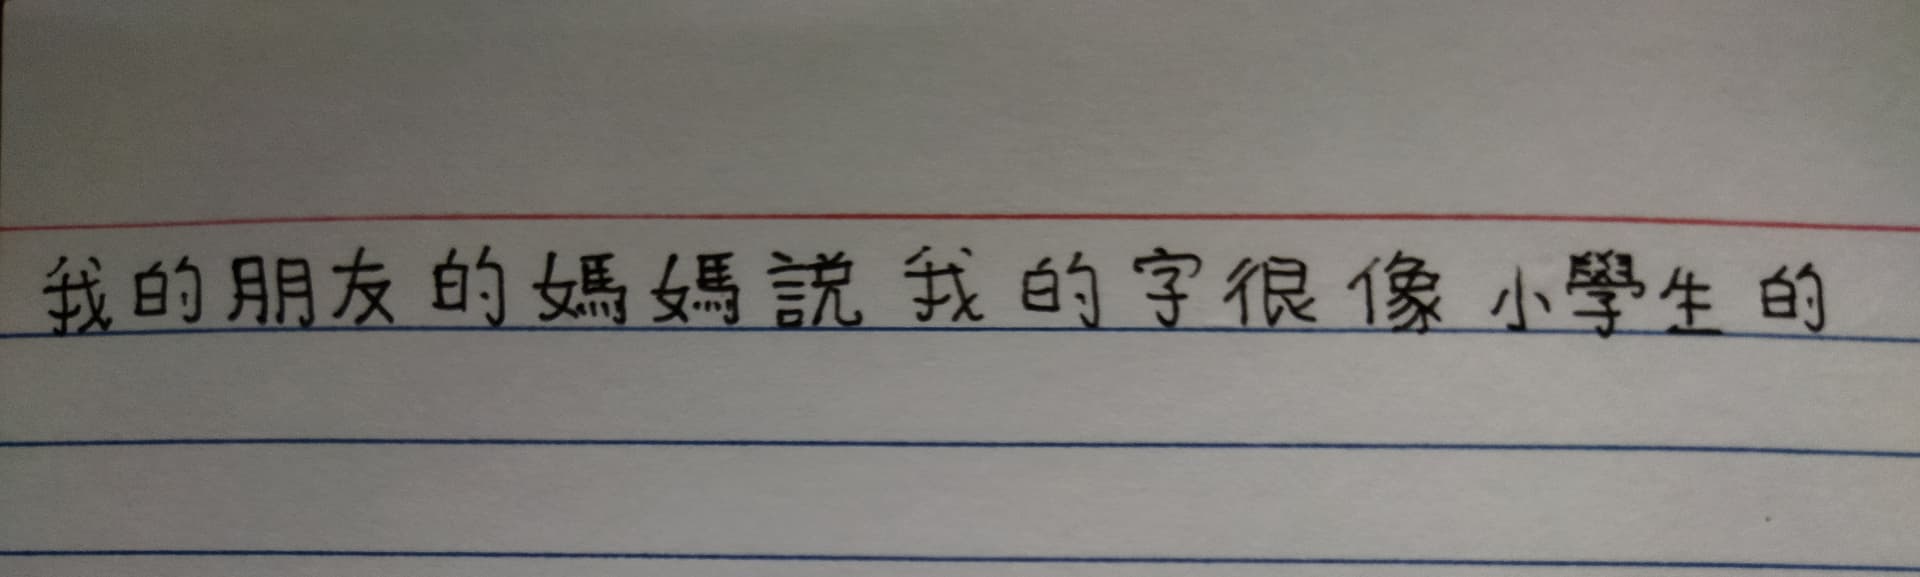 我的朋友的媽媽説我的字很像小學生的